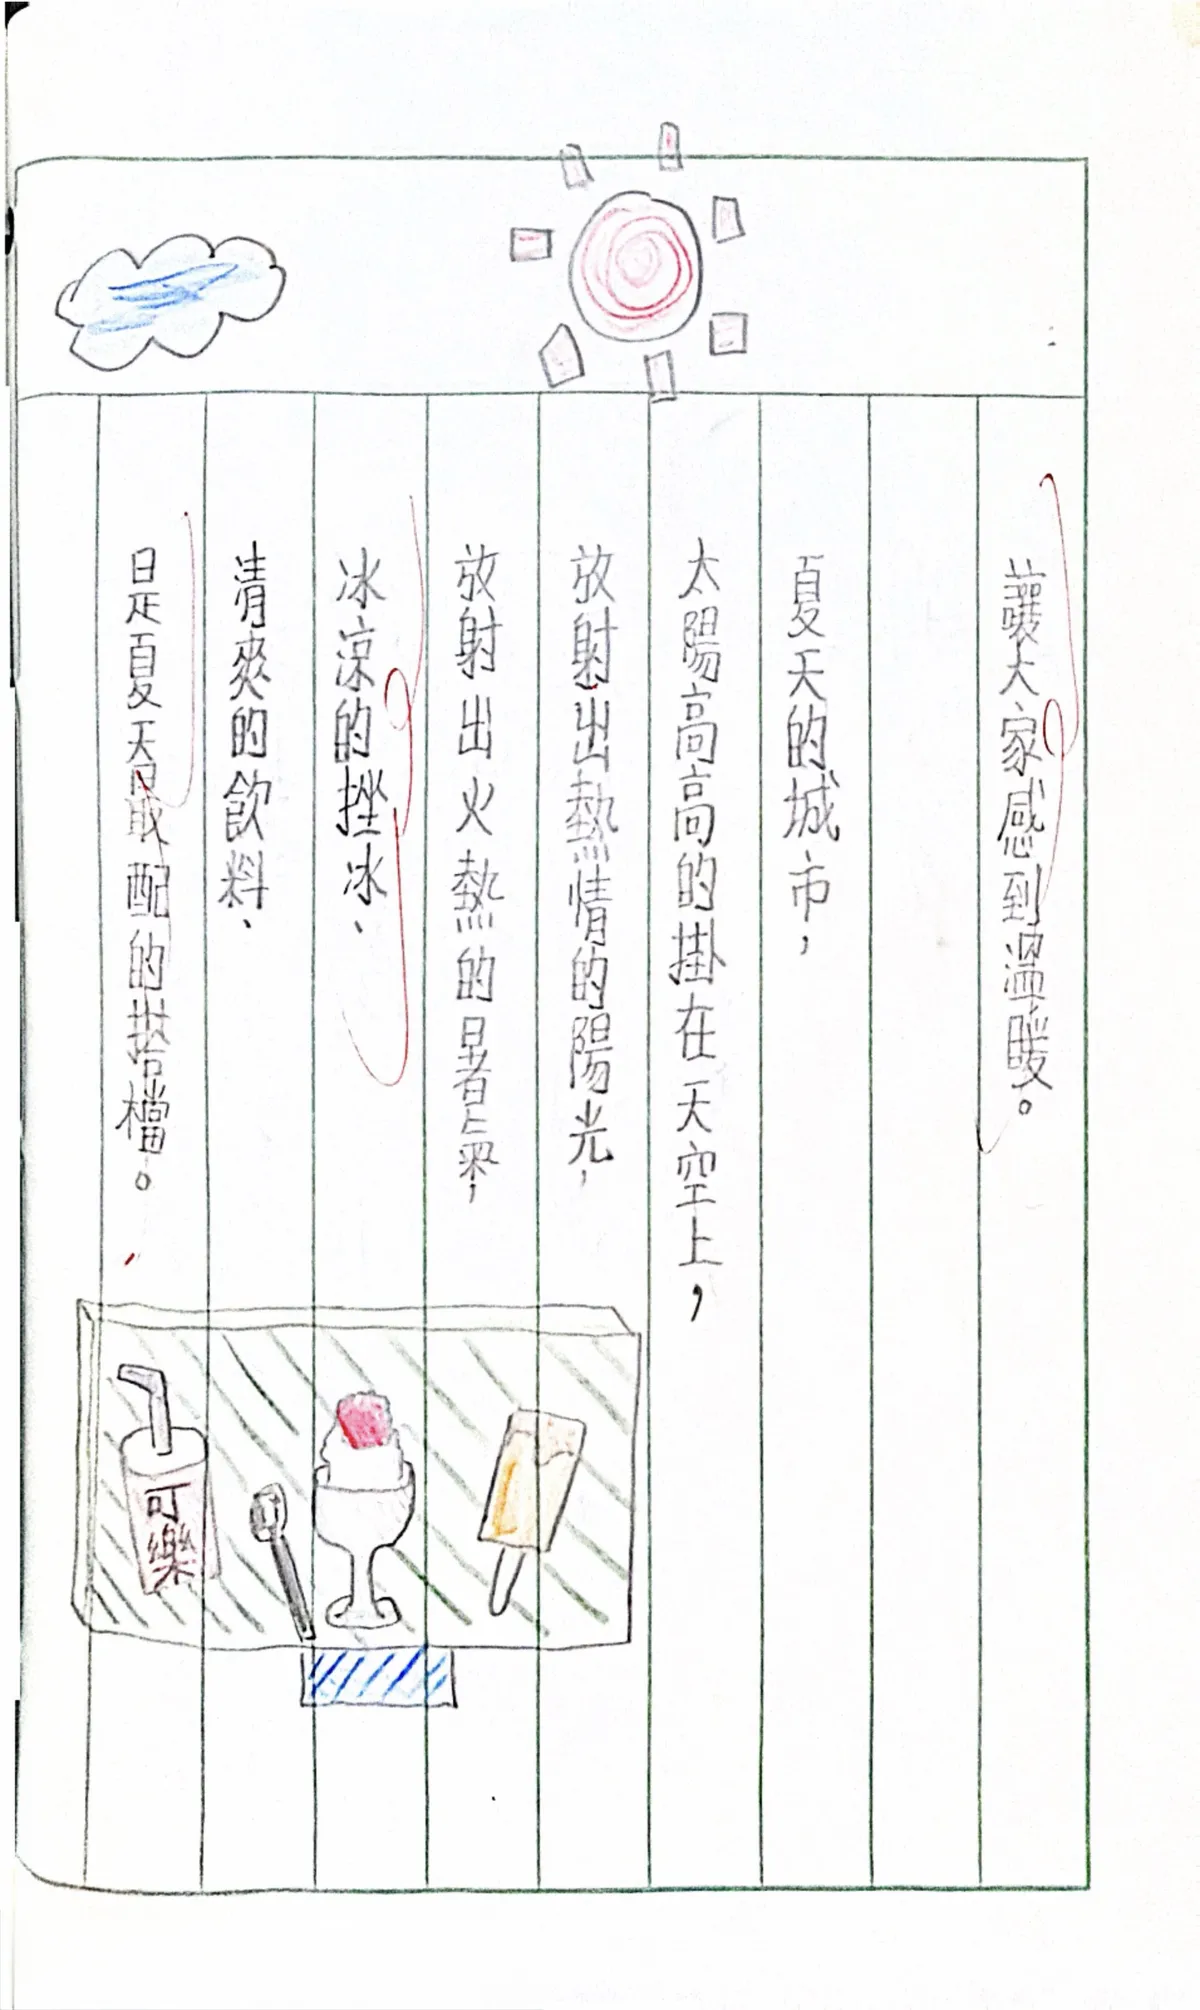 讓大家感到溫暖。
夏天的城市，
太陽高高的掛在天空上，
放射出熱情的陽光，
放射出火熱的暑氣，
冰涼的挫冰、
清爽的飲料、
是夏天最配的搭檔。
可樂